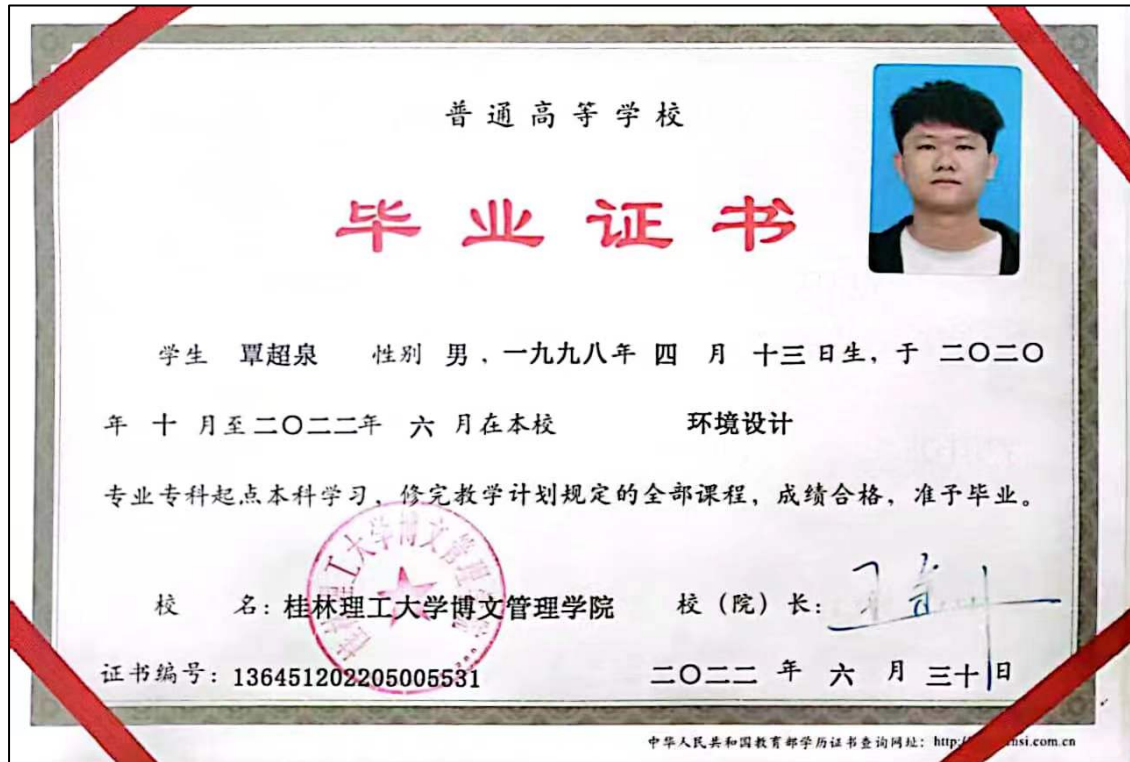 普通高等学校
毕业证书
学生 覃超泉 性别 男，一九九八年 四 月 十三日生，于 二〇二〇
年 十 月至二〇二二年 六 月在本校 环境设计
专业专科起点本科学习，修完教学计划规定的全部课程，成绩合格，准予毕业。
桂林理工大学博文管理学院
校 名：桂林理工大学博文管理学院 校（院）长：
证书编号：136451202205005531 二〇二二 年 六 月 三十日
中华人民共和国教育部学历证书查询网址：http:// si.com.cn